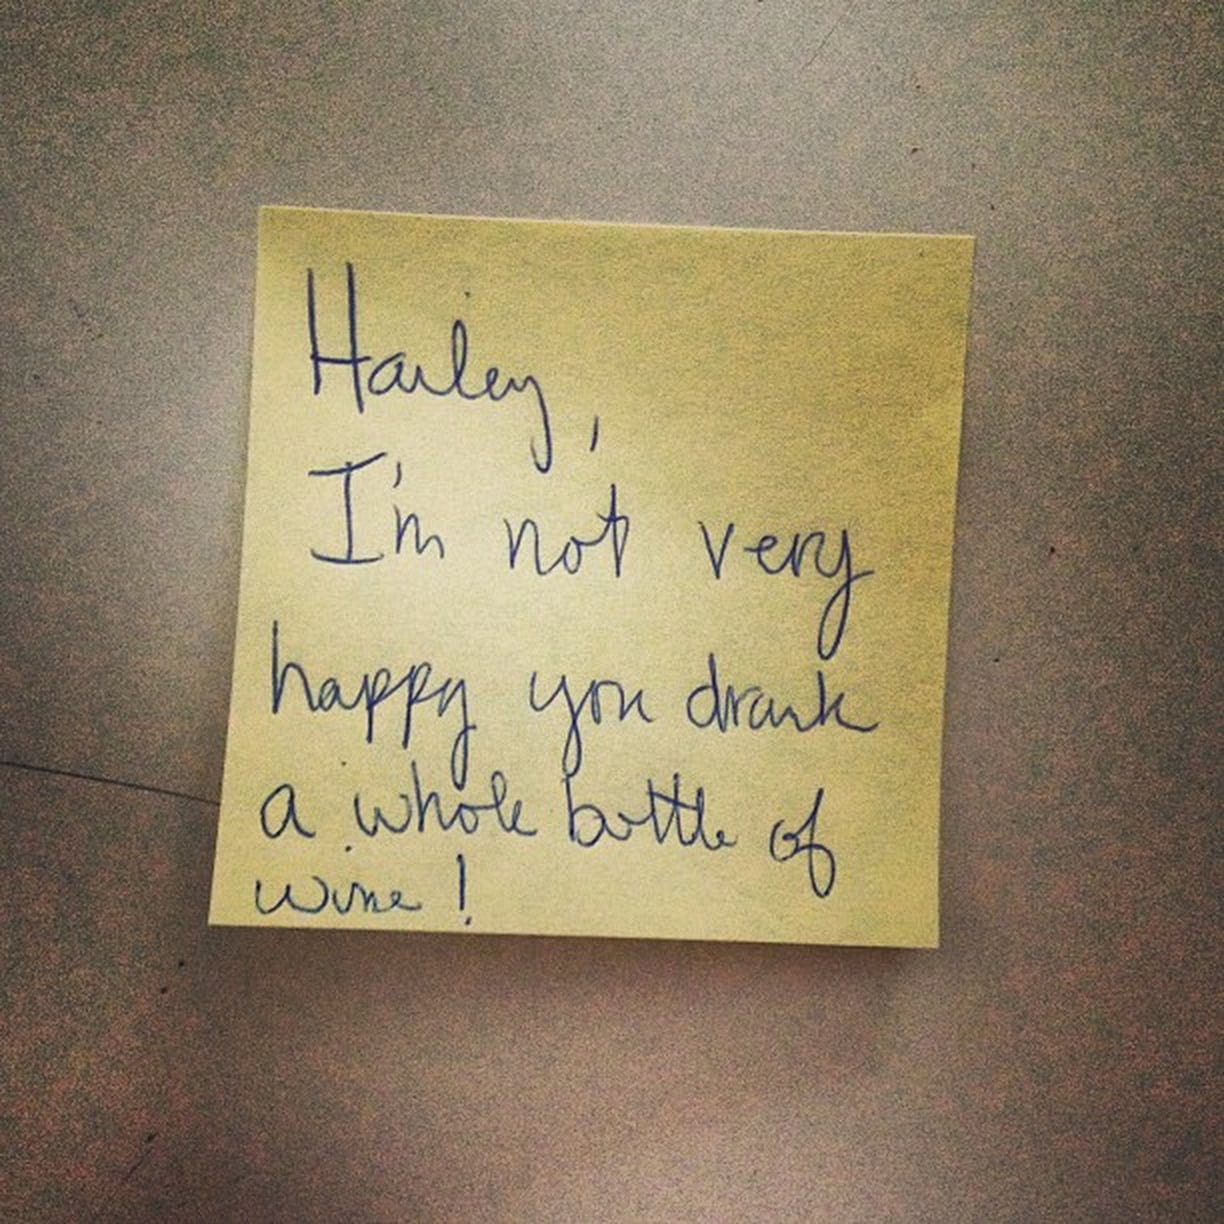 Hailey,
I'm not very
happy you drank
a whole bottle of
wine!